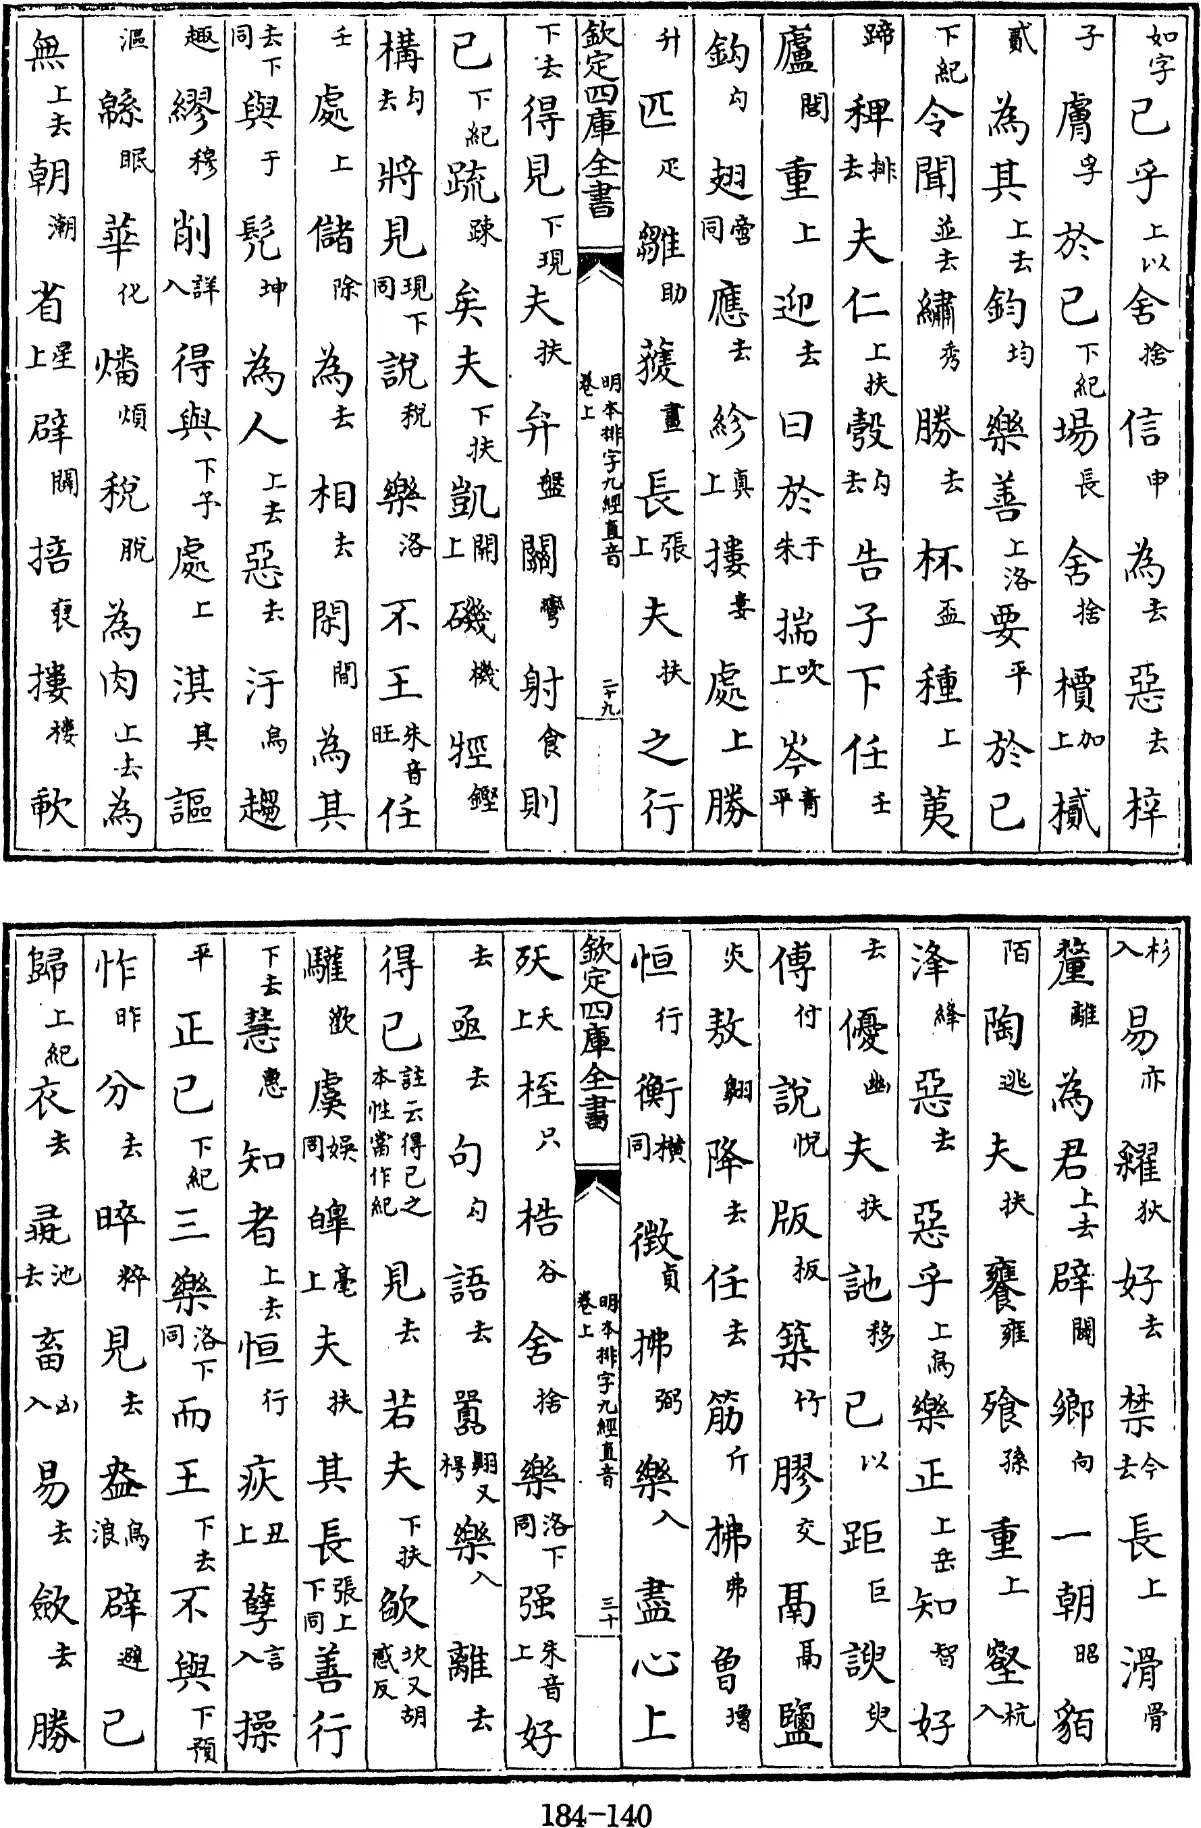 如字已乎上以舍捨信申為去惡去梓
子膚孚於已下紀場長舍捨檟加上樲
貳為其上去鈞均樂善上洛要平於已
下紀令聞並去繡秀勝去杯盃種上荑
蹄稗排去夫仁上扶彀勾去告子下任壬
廬閭重上迎去曰於于朱揣吹上岑青平
鈎勾翅啻同應去紾真上摟婁處上勝
升匹疋雛助蒦畫長張上夫扶之行
欽定四庫全書 明本排字九經直音 卷上 二十九
下去得見下現夫扶弁盤關彎射食則
已下紀疏踈矣夫下扶凱開上磯機牼鏗
構勾去將見現下同說稅樂洛不王朱音旺任
壬處上儲除為去相去閑間為其
去下同與于髡坤為人上去惡去汙烏趨
趣繆穆削詳入得與下予處上淇其謳
漚緜眠華化燔煩稅脫為肉上去為
無上去朝潮省星上辟闢掊裒摟樓軟
杉入易亦糴狄好去禁今去長上滑骨
釐離為君上去辟闢鄉向一朝昭貉
陌陶逃夫扶饔雍飱孫重上壑杭入
洚絳惡去惡乎上烏樂正上岳知智好
去優幽夫扶訑移已以距巨諛臾
傅付說悅版板築竹膠交鬲鬲鹽
炎敖翺降去任去筋斤拂弗曾增
恒行衡橫同徵貞拂弼樂入盡心上
欽定四庫全書 明本排字九經直音 卷上 三十
殀夭上桎只梏谷舍捨樂洛下同强朱音上好
去亟去句勾語去囂翺又枵樂入離去
得已註云得已之本性當作紀見去若夫下扶欿坎又胡感反
驩歡虞娛同皥毫上夫扶其長張上下同善行
下去慧惠知者上去恒行疢丑上孽言入操
平正已下紀三樂洛下同而王下去不與下預
怍昨分去睟粹見去盎烏浪辟避已
歸上紀衣去彘池去畜凶入易去斂去勝
184-140